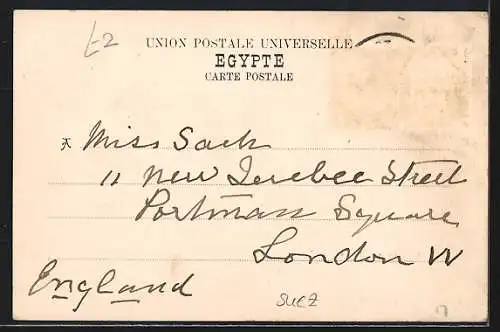 £2
UNION POSTALE UNIVERSELLE
EGYPTE
CARTE POSTALE
Miss Sach
11 New Quebec Street
Portman Square
London W
England
SUEZ